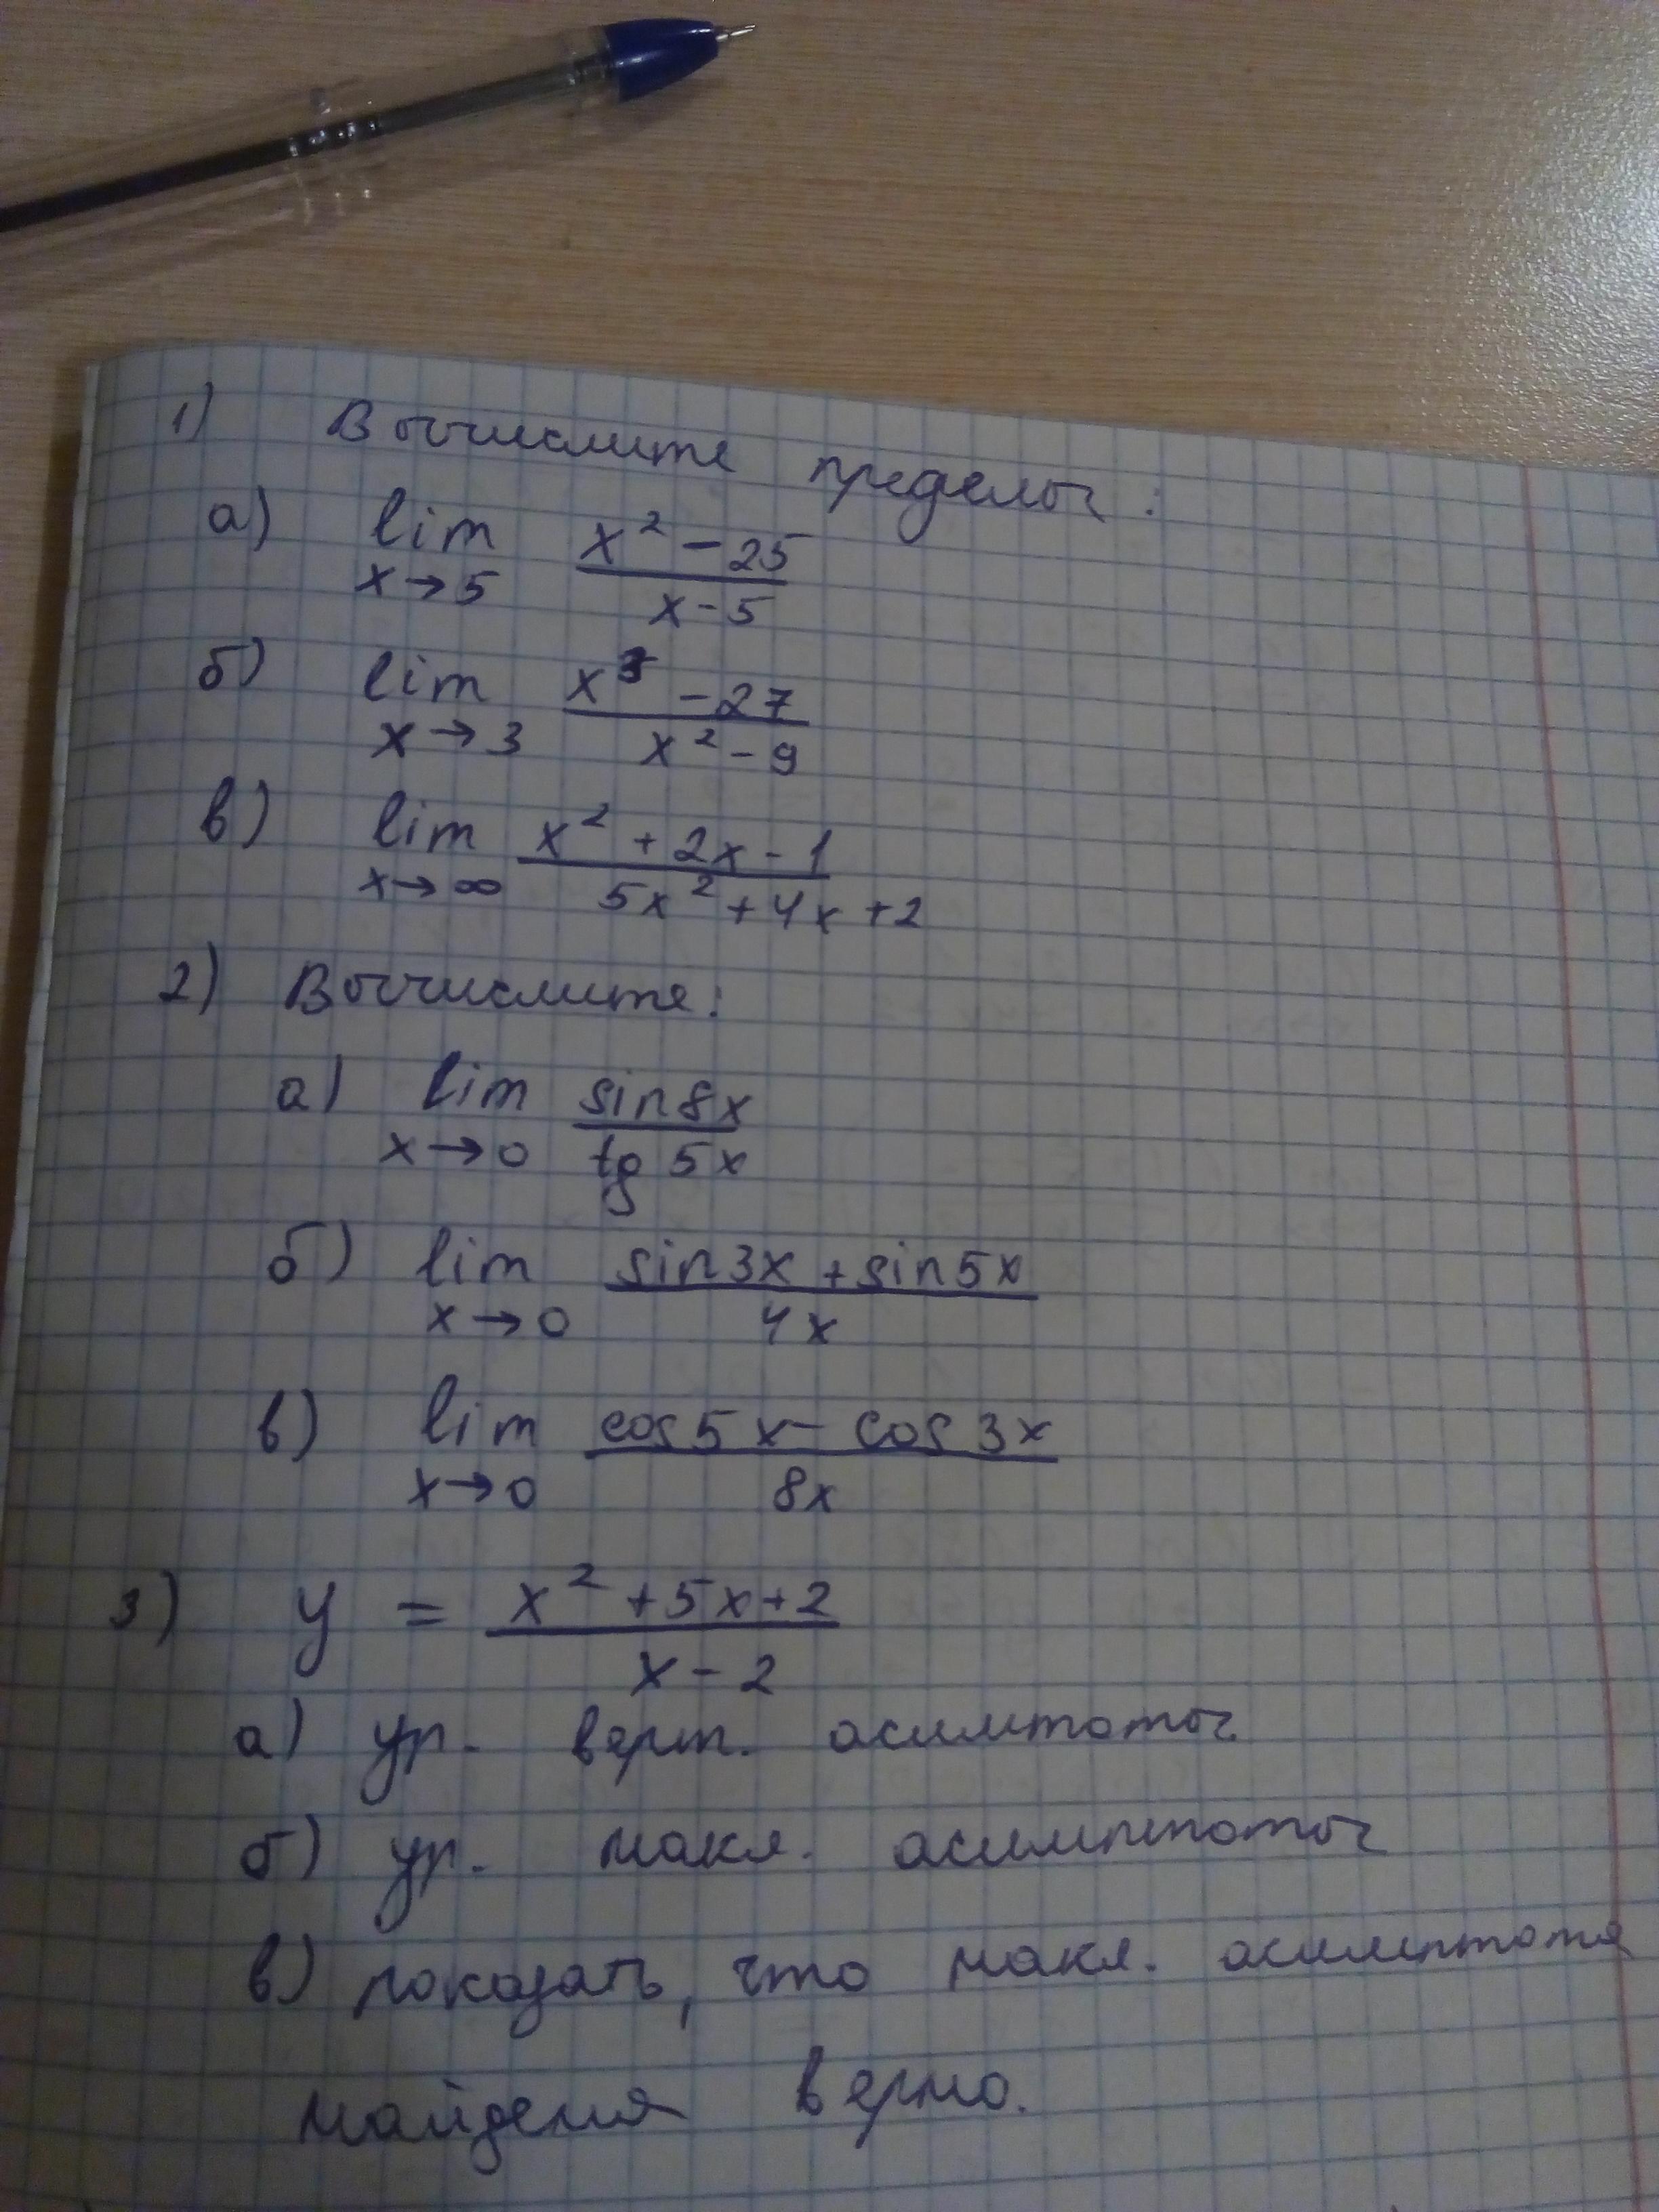 1) Вычислите пределы:
а) lim x→5 (x² - 25)/(x - 5)
б) lim x→3 (x³ - 27)/(x² - 9)
в) lim x→∞ (x² + 2x - 1)/(5x² + 4x + 2)
2) Вычислите:
а) lim x→0 sin8x/tg 5x
б) lim x→0 (sin3x + sin5x)/4x
в) lim x→0 (cos5x - cos3x)/8x
3) y = (x² + 5x + 2)/(x - 2)
а) ур. верт. асимтоты
б) ур. накл. асимптоты
в) показать, что накл. асимптота
найдена верно.